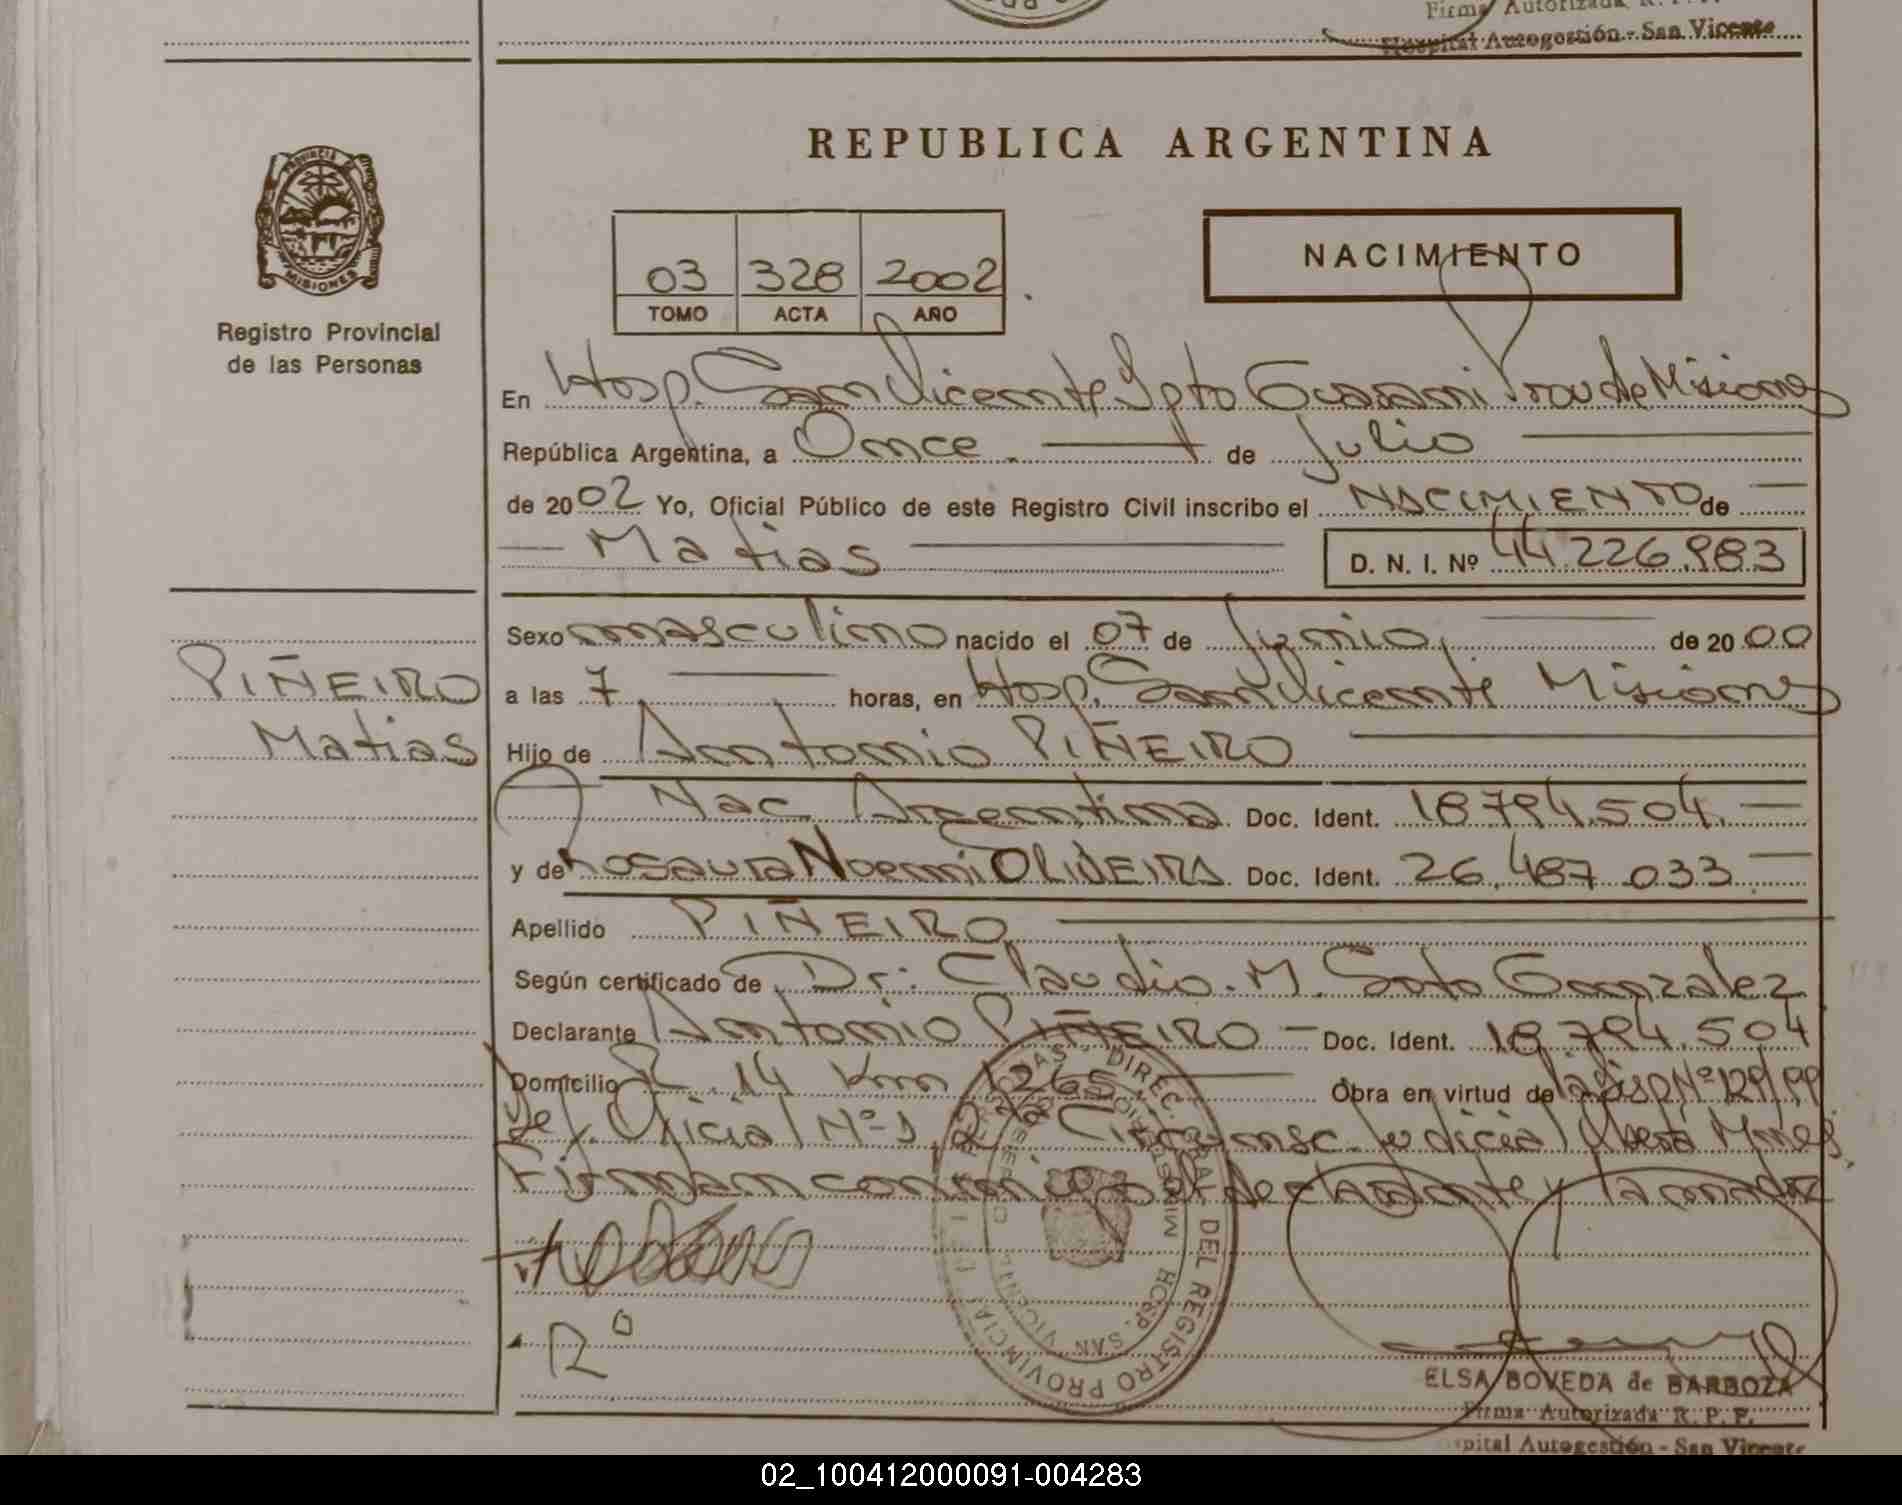 Firma Autorizada R. P. P.
Hospital Autogestión - San Vicente
REPUBLICA ARGENTINA
PROVINCIA DE
MISIONES
Registro Provincial
de las Personas
03 328 2002
TOMO ACTA AÑO
NACIMIENTO
En Hosp. San Vicente Dpto Guarani Prov de Misiones
República Argentina, a Once. de Julio
de 2002 Yo, Oficial Público de este Registro Civil inscribo el NACIMIENTO de
Matias D. N. I. Nº 44.226.983
Sexo masculino nacido el 07 de Junio de 2000
PIÑEIRO
Matias
a las 7 horas, en Hosp. San Vicente Misiones
Hijo de Antonio PIÑEIRO
Nac. Argentina Doc. Ident. 18.794.504.
y de Rosaura Noemi OLIVEIRA Doc. Ident. 26.487.033
Apellido PIÑEIRO
Según certificado de Dr. Claudio. M. Soto Gonzalez
Declarante Antonio PIÑEIRO - Doc. Ident. 18.794.504
Domicilio R. 14 Km 1265 Obra en virtud de la Disp Nº 129/99
Def. Oficial Nº 1 2da Circunsc. Judicial Oberá Mnes.
Firman conmigo el declarante y la madre
DIREC. GRAL. DEL REGISTRO PROVINCIAL DE LAS PERSONAS
MISIONES HOSP. SAN VICENTE
ELSA BOVEDA de BARBOZA
Firma Autorizada R. P. P.
Hospital Autogestión - San Vicente
02_100412000091-004283